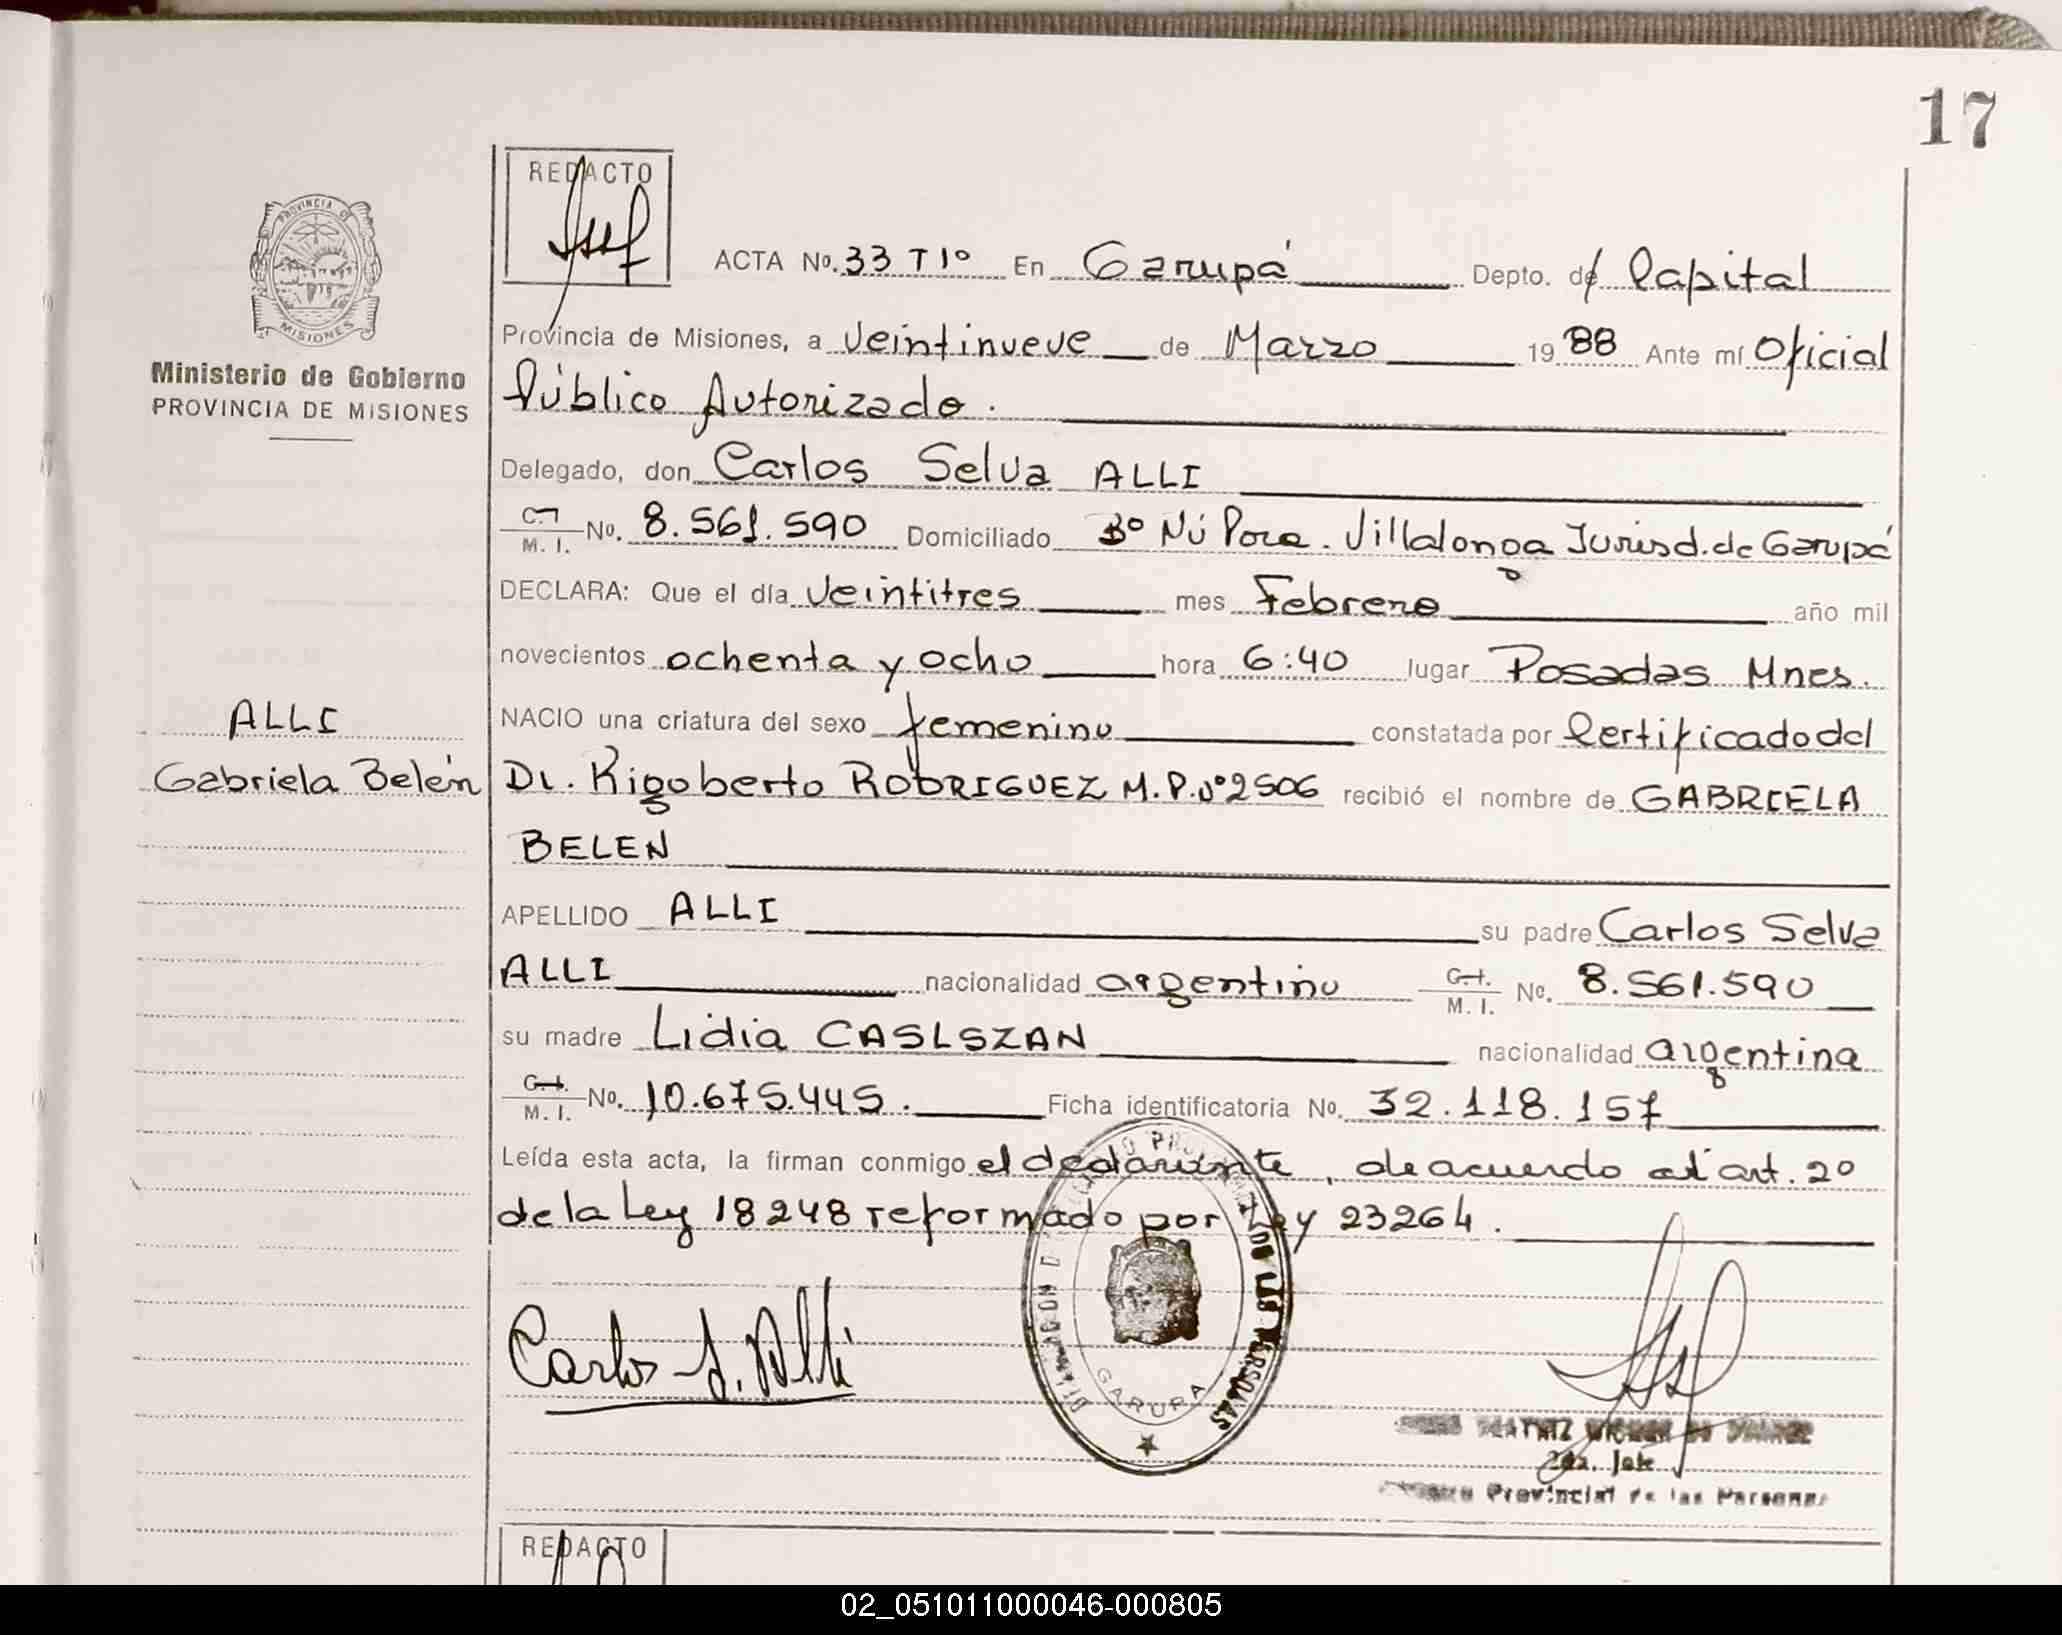 17
REDACTO
PROVINCIA DE
MISIONES
Ministerio de Gobierno
PROVINCIA DE MISIONES
ACTA No. 33 T 1º En Garupá Depto. de Capital
Provincia de Misiones, a veintinueve de Marzo 1988 Ante mí Oficial
Público Autorizado.
Delegado, don Carlos Selva ALLI
C.I.
M. I. No. 8.561.590 Domiciliado Bº Ñú Pora. Villalonga Jurisd. de Garupá
DECLARA: Que el día veintitres mes Febrero año mil
novecientos ochenta y ocho hora 6:40 lugar Posadas Mnes.
NACIO una criatura del sexo femenino constatada por Certificado del
ALLI
Gabriela Belén
Dr. Rigoberto RODRIGUEZ M.P.Nº 2506 recibió el nombre de GABRIELA
BELEN
APELLIDO ALLI su padre Carlos Selva
ALLI nacionalidad argentino C.I.
M. I. No. 8.561.590
su madre Lidia CASLSZAN nacionalidad argentina
C.I.
M. I. No. 10.675.445. Ficha identificatoria No. 32.118.157
Leída esta acta, la firman conmigo el declarante, de acuerdo al art. 2º
de la Ley 18248 reformado por Ley 23264.
Carlos S. Alli
DE LAS PERSONAS
GARUPA
BEATRIZ
2da. Jefe
Provincial de las Personas
REDACTO
02_051011000046-000805